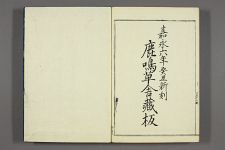 嘉永六年癸丑新刻
鹿鳴草舎藏板